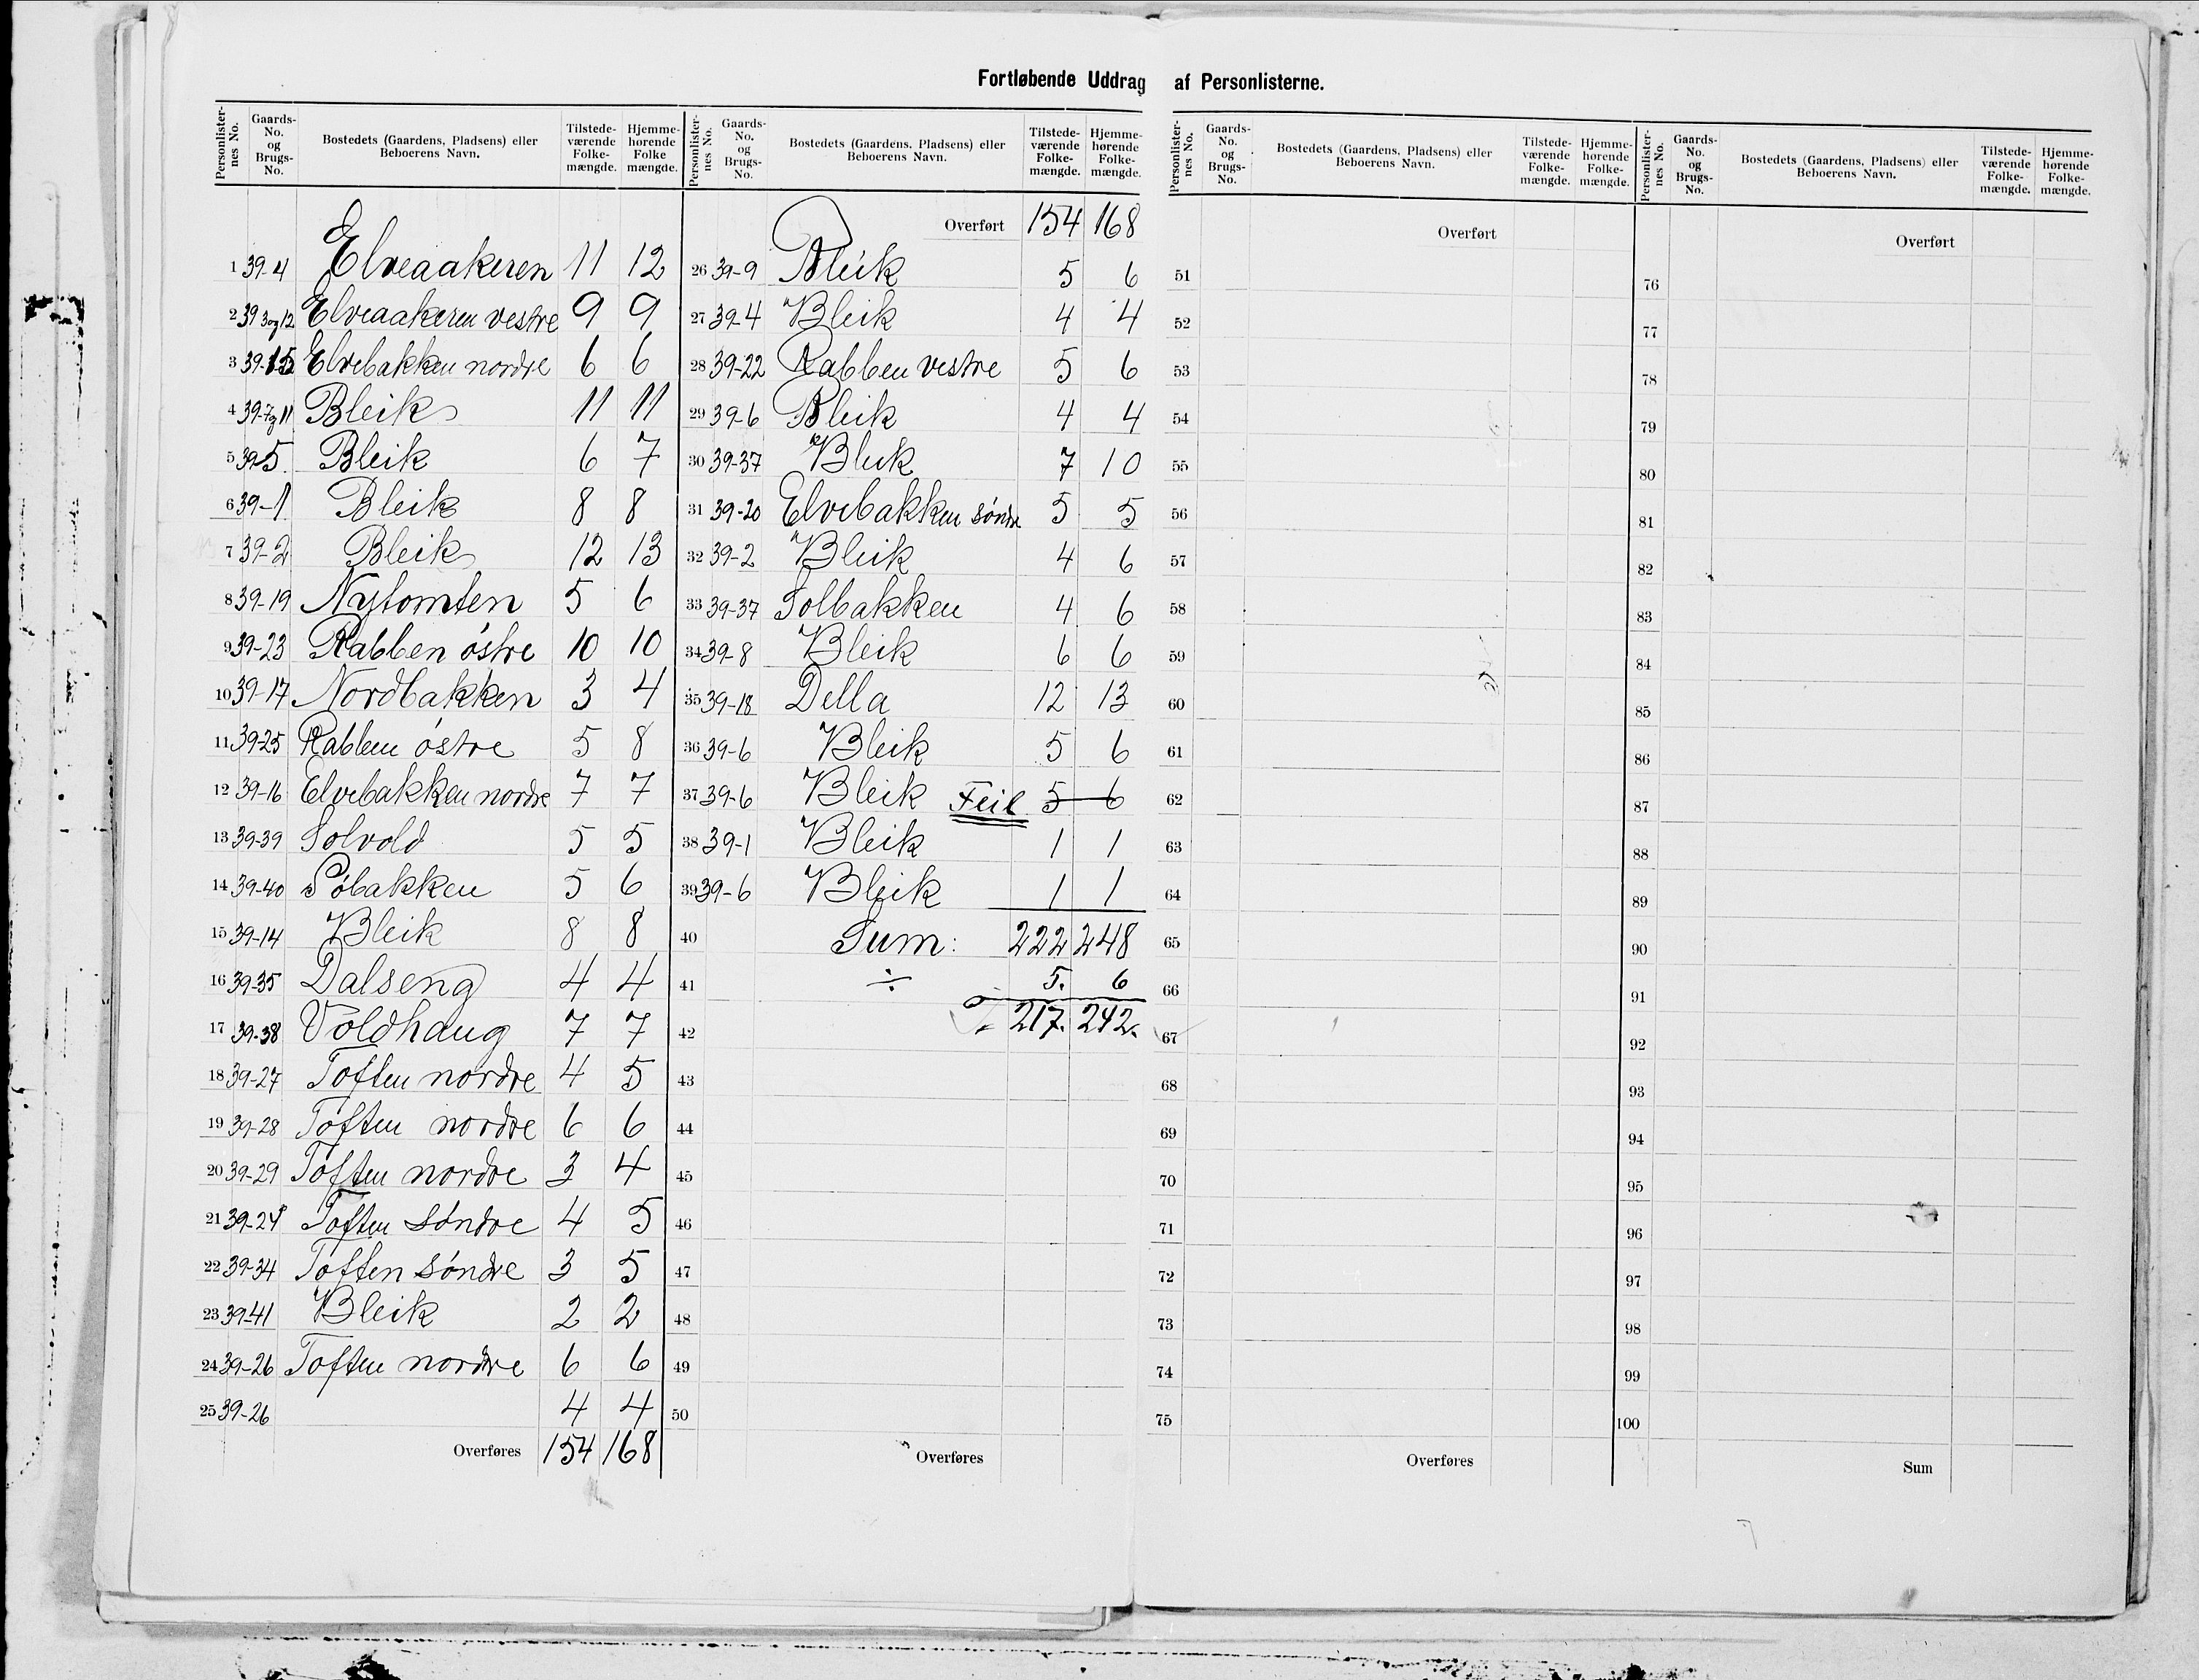 Fortløbende Uddrag af Personlisterne.
Personlister-nes No. Gaards-No. og Brugs-No. Bostedets (Gaardens, Pladsens) eller Beboerens Navn. Tilstede-værende Folke-mængde. Hjemme-hørende Folke mængde.
1 39-4 Elveaakeren 11 12
2 39 3og12 Elveaakeren vestre 9 9
3 39-15 Elvebakken nordre 6 6
4 39-7og11 Bleik 11 11
5 39-5 Bleik 6 7
6 39-1 Bleik 8 8
7 39-2 Bleik 12 13
8 39-19 Nytomten 5 6
9 39-23 Rabben østre 10 10
10 39-17 Nordbakken 3 4
11 39-25 Rabben østre 5 8
12 39-16 Elvebakken nordre 7 7
13 39-39 Solvold 5 5
14 39-40 Søbakken 5 6
15 39-14 Bleik 8 8
16 39-35 Dalseng 4 4
17 39-38 Voldhaug 7 7
18 39-27 Toften nordre 4 5
19 39-28 Toften nordre 6 6
20 39-29 Toften nordre 3 4
21 39-24 Toften søndre 4 5
22 39-34 Toften søndre 3 5
23 39-41 Bleik 2 2
24 39-26 Toften nordre 6 6
25 39-26 4 4
Overføres 154 168
Personlister-nes No. Gaards-No. og Brugs-No. Bostedets (Gaardens, Pladsens) eller Beboerens Navn. Tilstede-værende Folke-mængde. Hjemme-hørende Folke-mængde.
Overført 154 168
26 39-9 Bleik 5 6
27 39-4 Bleik 4 4
28 39-22 Rabben vestre 5 6
29 39-6 Bleik 4 4
30 39-37 Bleik 7 10
31 39-20 Elvebakken søndre 5 5
32 39-2 Bleik 4 6
33 39-37 Solbakken 4 6
34 39-8 Bleik 6 6
35 39-18 Della 12 13
36 39-6 Bleik 5 6
37 39-6 Bleik Feil 5 6
38 39-1 Bleik 1 1
39 39-6 Bleik 1 1
40 Sum: 222 248
41 ÷ 5. 6
42 217. 242.
43
44
45
46
47
48
49
50
Overføres
Personlister-nes No. Gaards-No. og Brugs-No. Bostedets (Gaardens, Pladsens) eller Beboerens Navn. Tilstede-værende Folke-mængde. Hjemme-hørende Folke-mængde.
Overført
51
52
53
54
55
56
57
58
59
60
61
62
63
64
65
66
67
68
69
70
71
72
73
74
75
Overføres
Personlister-nes No. Gaards-No. og Brugs-No. Bostedets (Gaardens, Pladsens) eller Beboerens Navn. Tilstede-værende Folke-mængde. Hjemme-hørende Folke-mængde.
Overført
76
77
78
79
80
81
82
83
84
85
86
87
88
89
90
91
92
93
94
95
96
97
98
99
100
Sum